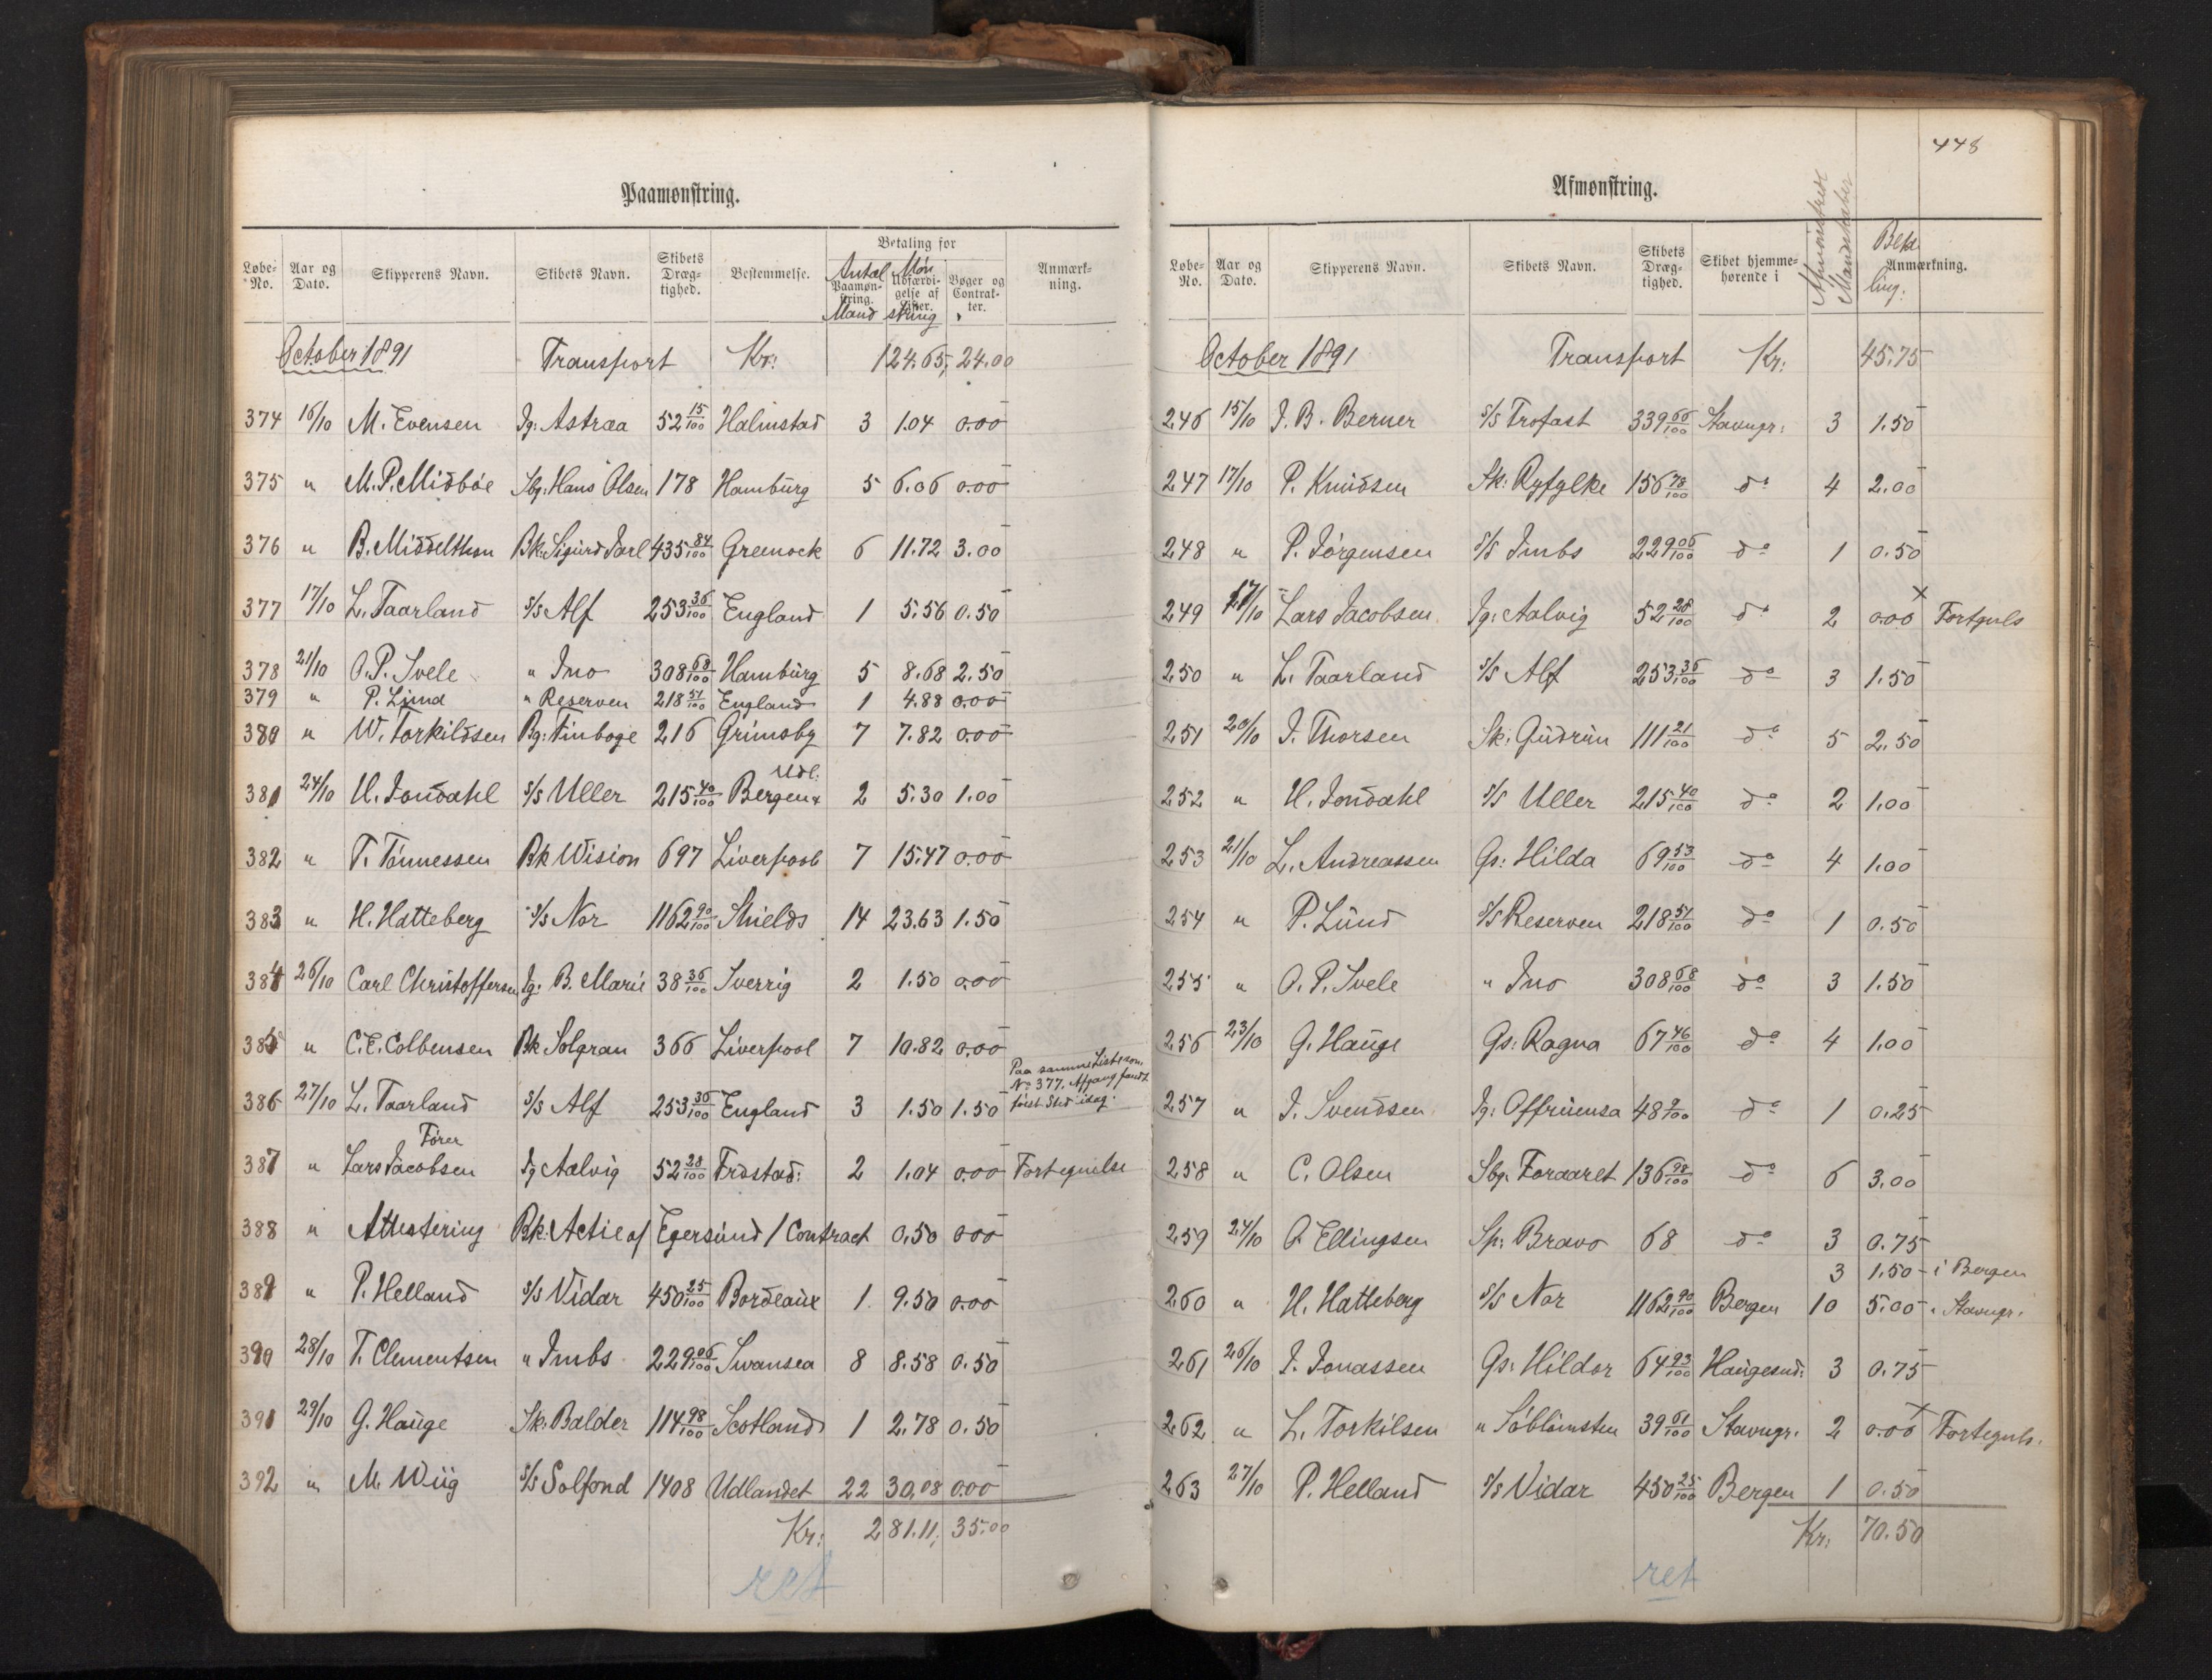 Paamønstring.
Løbe-No. Aar og Dato. Skipperens Navn. Skibets Navn. Skibets Drægtighed. Bestemmelse. Betaling for Antal Paamønstring. Mand Møn Udfærdigelse af Lister. string Bøger og Contrakter. Anmærkning.
October 1891 Transport Kr: 124.65, 24.00
374 16/10 M. Evensen Jg: Astræa 52 15/100 Halmstad 3 1.04 0.00
375 " M. P. Midbøe Sbg: Hans Olsen 178 Hamburg 5 6.06 0.00
376 " B. Middelthon Bk: Sigurd Jarl 435 84/100 Greenock 6 11.72 3.00
377 17/10 L. Taarland S/S Alf 253 36/100 England 1 5.56 0.50
378 21/10 O. P. Svele " Ino 308 68/100 Hamburg 5 8.68 2.50
379 " P. Lund " Reserven 218 51/100 England 1 4.88 0.00
380 " W. Torkildsen Bg: Finboge 216 Grimsby 7 7.82 0.00
381 24/10 H. Jondahl S/S Uller 215 40/100 Bergen x Udl. 2 5.30 1.00
382 " T. Tønnessen Bk Wision 697 Liverpool 7 15.47 0.00
383 " H. Hatteberg S/S Nor 1162 90/100 Shields 14 23.63 1.50
384 26/10 Carl Christoffersen Jg: B. Marie 38 36/100 Sverrig 2 1.50 0.00
385 " C. E. Colbensen Bk Solgran 366 Liverpool 7 10.82 0.00
386 27/10 L. Taarland S/S Alf 253 36/100 England 3 1.50 1.50 Paa samme Liste som No 377. Afgang fandt først Sted idag.
387 " Fører Lars Jacobsen Jg Aalvig 52 28/100 Frdstad: 2 1.04 0.00 Fortegnelse
388 " Attestering Bk: Actie af Egersund / Contract 0.50 0.00
389 " P. Helland S/S Vidar 450 25/100 Bordeaux 1 9.50 0.00
390 28/10 T. Clementsen " Imbs 229 06/100 Swansea 8 8.58 0.50
391 29/10 G. Hauge Sk: Balder 114 98/100 Scotland 1 2.78 0.50
392 " M. Wiig S/S Solfond 1408 Udlandet 22 30.08 0.00
Kr: 281.11, 35.00
ret
448
Afmønstring.
Løbe-No. Aar og Dato. Skipperens Navn. Skibets Navn. Skibets Drægtighed. Skibet hjemmehørende i Afmønstrede Mandskaber Anmærkning. Betaling.
October 1891 Transport Kr: 45.75
246 15/10 J. B. Berner S/S Trofast 339 66/100 Stavngr: 3 1.50
247 17/10 P. Knudsen Sk: Ryfylke 156 78/100 do 4 2.00
248 " P. Jørgensen S/S Imbs 229 06/100 do 1 0.50
249 17/10 Lars Jacobsen Jg: Aalvig 52 28/100 do 2 0.00 x Fortgnls
250 " L. Taarland S/S Alf 253 36/100 do 3 1.50
251 20/10 J. Thorsen Sk: Gudrun 111 21/100 do 5 2.50
252 " H. Jondahl S/S Uller 215 40/100 do 2 1.00
253 21/10 L. Andreassen Gs: Hilda 69 53/100 do 4 1.00
254 " P. Lund S/S Reserven 218 51/100 do 1 0.50
255 " O. P. Svele " Ino 308 68/100 do 3 1.50
256 23/10 G. Hauge Gs: Ragna 67 46/100 do 4 1.00
257 " J. Svendsen Jg: Offruensa 48 9/100 do 1 0.25
258 " C. Olsen Sbg. Foraaret 136 98/100 do 6 3.00
259 24/10 O. Ellingsen Sp: Bravo 68 do 3 0.75
3 1.50 - i Bergen
260 " H. Hatteberg S/S Nor 1162 90/100 Bergen 10 5.00 - " Stavngr.
261 26/10 J. Jonassen Gs: Hildor 64 93/100 Haugesnd: 3 0.75
262 " L. Torkilsen " Søblomsten 39 61/100 Stavngr. 2 0.00 x Fortegnls.
263 27/10 P. Helland S/S Vidar 450 25/100 Bergen 1 0.50
Kr: 70.50
ret